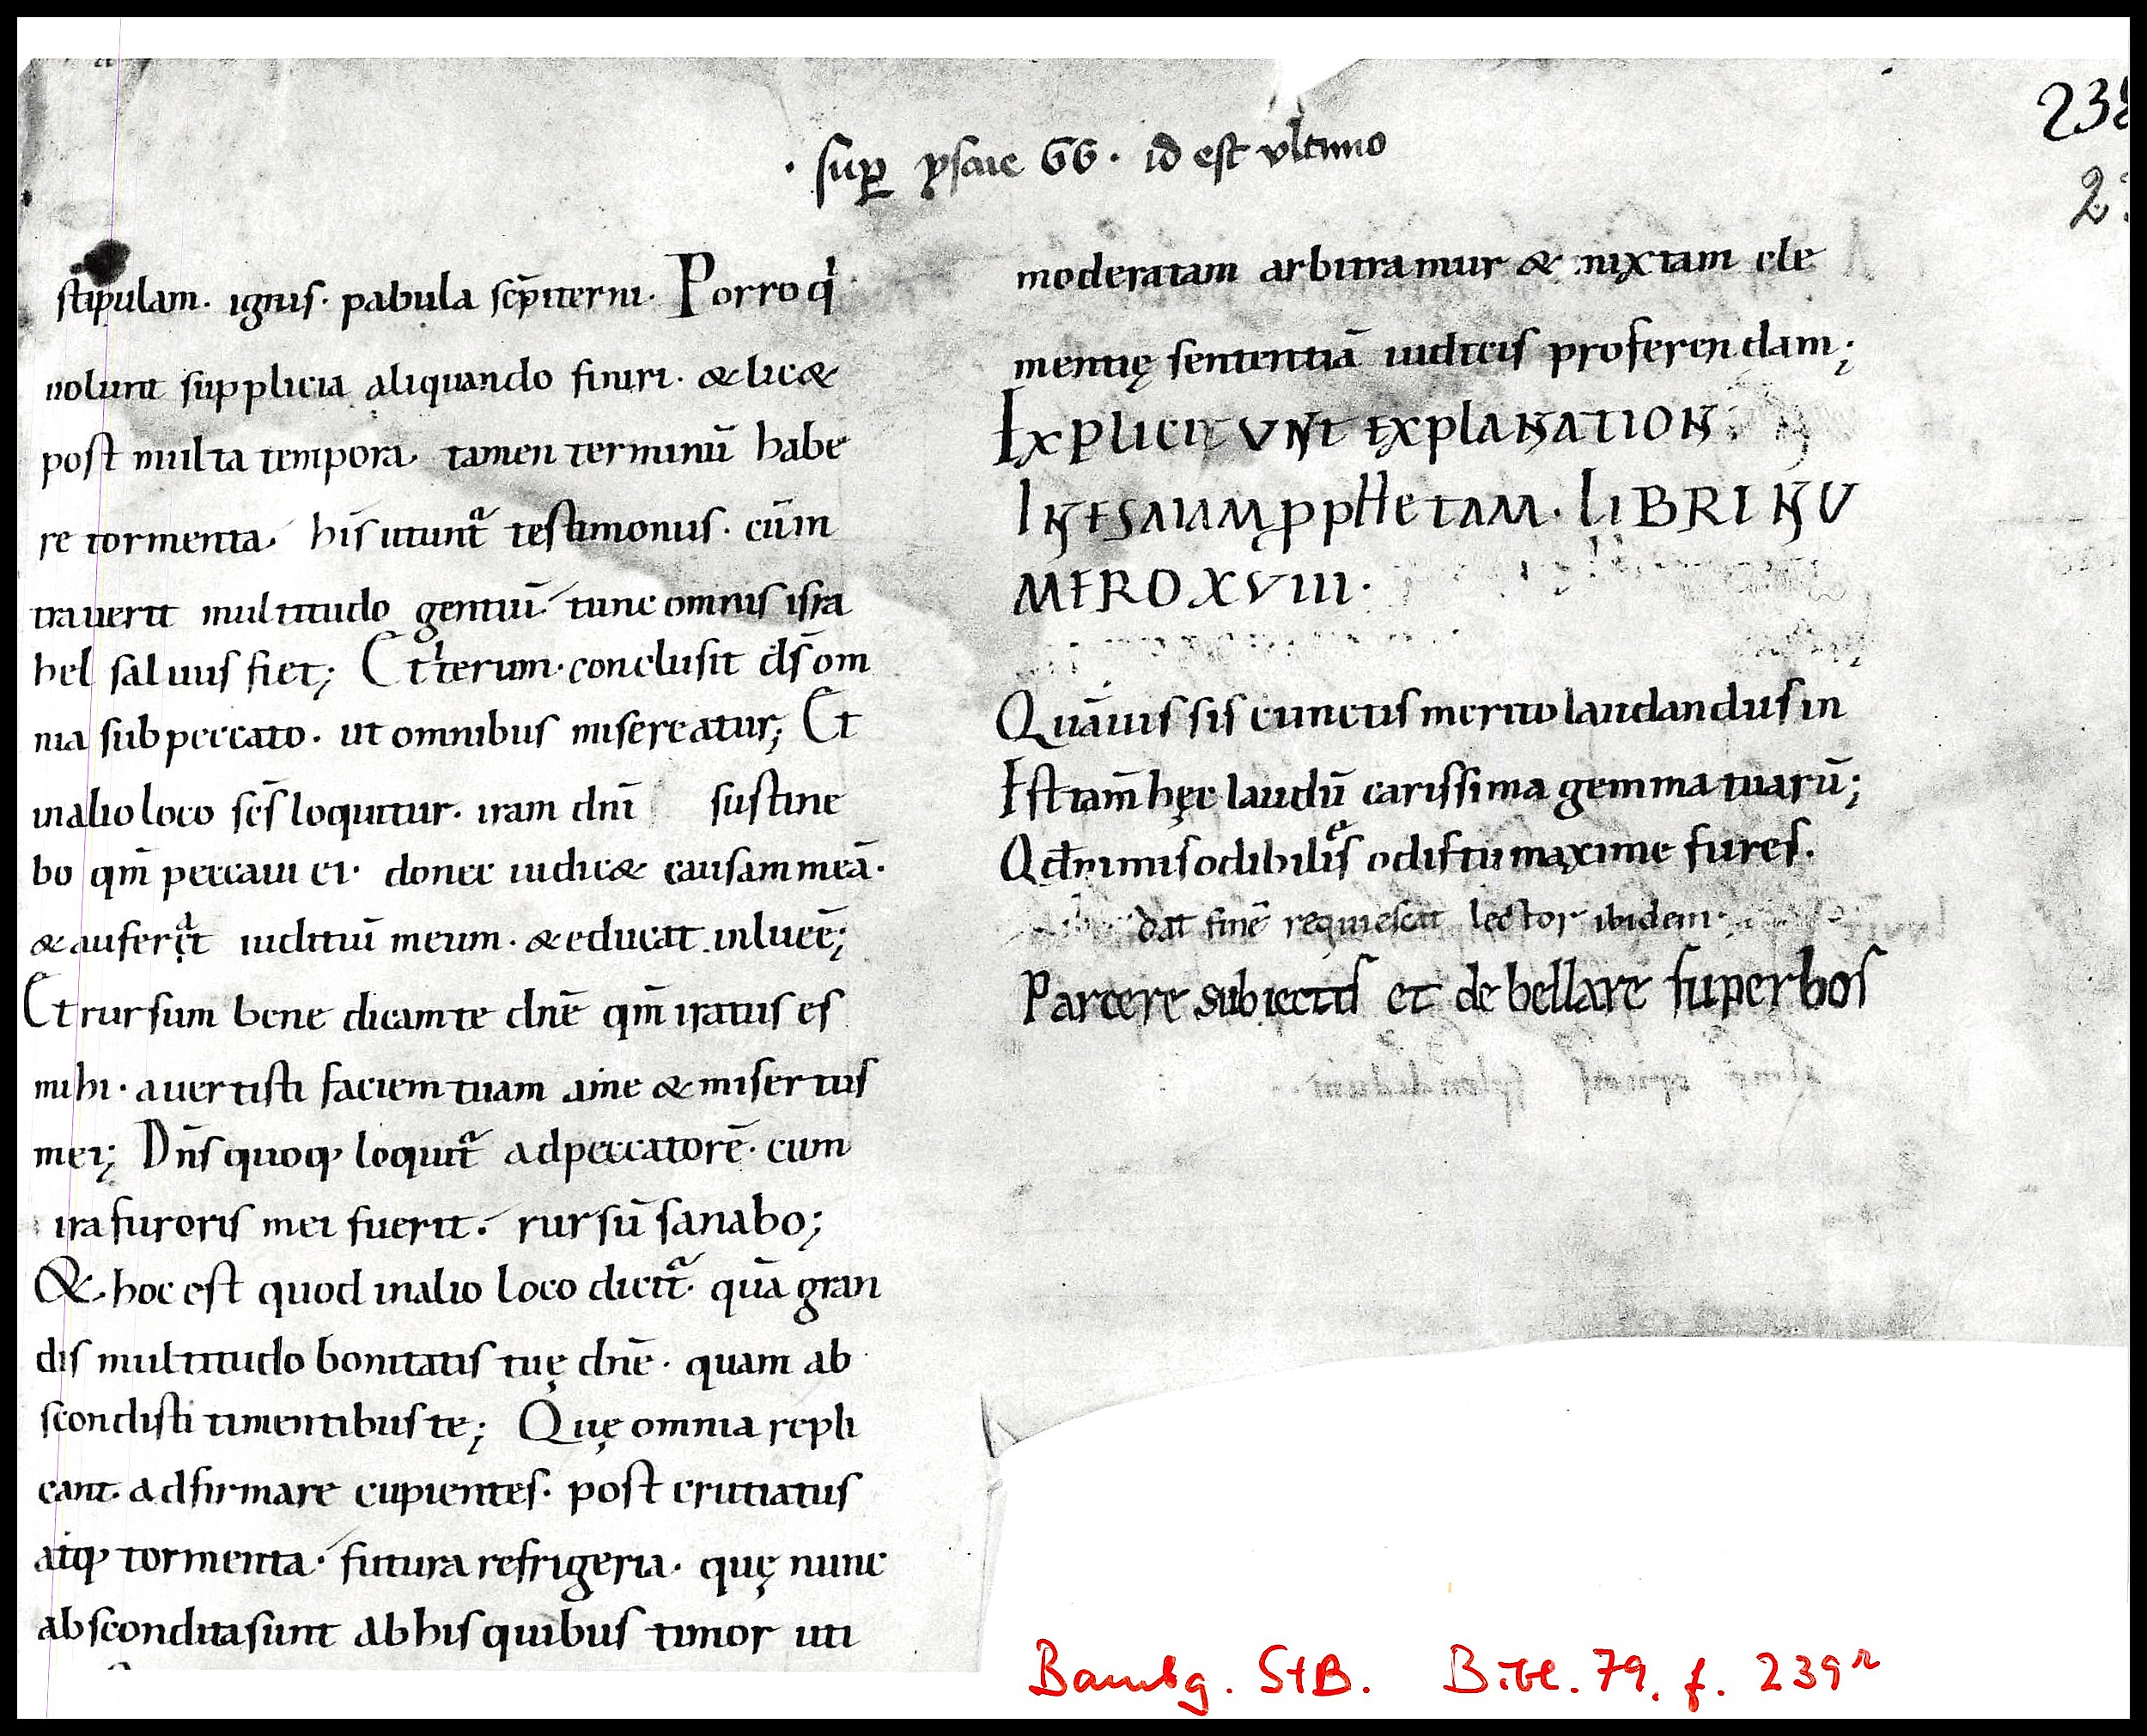 238
2
· sup ysaie 66 · id est vltimo
stipulam. ignis. pabula sēpiterni. Porro qͥ
uolunt supplicia aliquando finiri. & lic&
post multa tempora. tamen terminū habe
re tormenta. his utuntᷓ testimoniis. cū in
trauerit multitudo gentiū. tunc omnis isra
hel saluus fiet; Et iterum. conclusit ds̄ om
nia sub peccato. ut omnibus misereatur; Et
in alio loco scs̄ loquitur. iram dnī sustine
bo qm̄ peccaui ei. donec iudic& causam meā.
& auferat iuditiū meum. & educat in lucē;
Et rursum benedicam te dnē qm̄ iratus es
mihi. auertisti faciem tuam a me & misertus
mei; Dns̄ quoq; loquitᷓ ad peccatorē. cum
ira furoris mei fuerit. rursū sanabo;
&. hoc est quod in alio loco dicitᷓ. quā gran
dis multitudo bonitatis tuę dnē. quam ab
scondisti timentibus te; Quę omnia repli
cant. adfirmare cupientes. post crutiatus
atq; tormenta. futura refrigeria. quę nunc
abscondita sunt ab his quibus timor uti
moderatam arbitramur & mixtam cle
mentię sententiā iudicis proferendam;
EXPLICIUNT EXPLANATION
IN ESAIAM PPHETAM. LIBRI NU
MERO XVIII.
Quāuis sis cunctis merito laudandus in
Est tam̄ hęc laudū carissima gemma tuarū;
Qd̄ nimis odibiles odis tu maxime fures.
dat finē requiescat lector ibidem.
Parcere subiectis et debellare superbos
Bambg. StB. Bibl. 79, f. 239ʳ